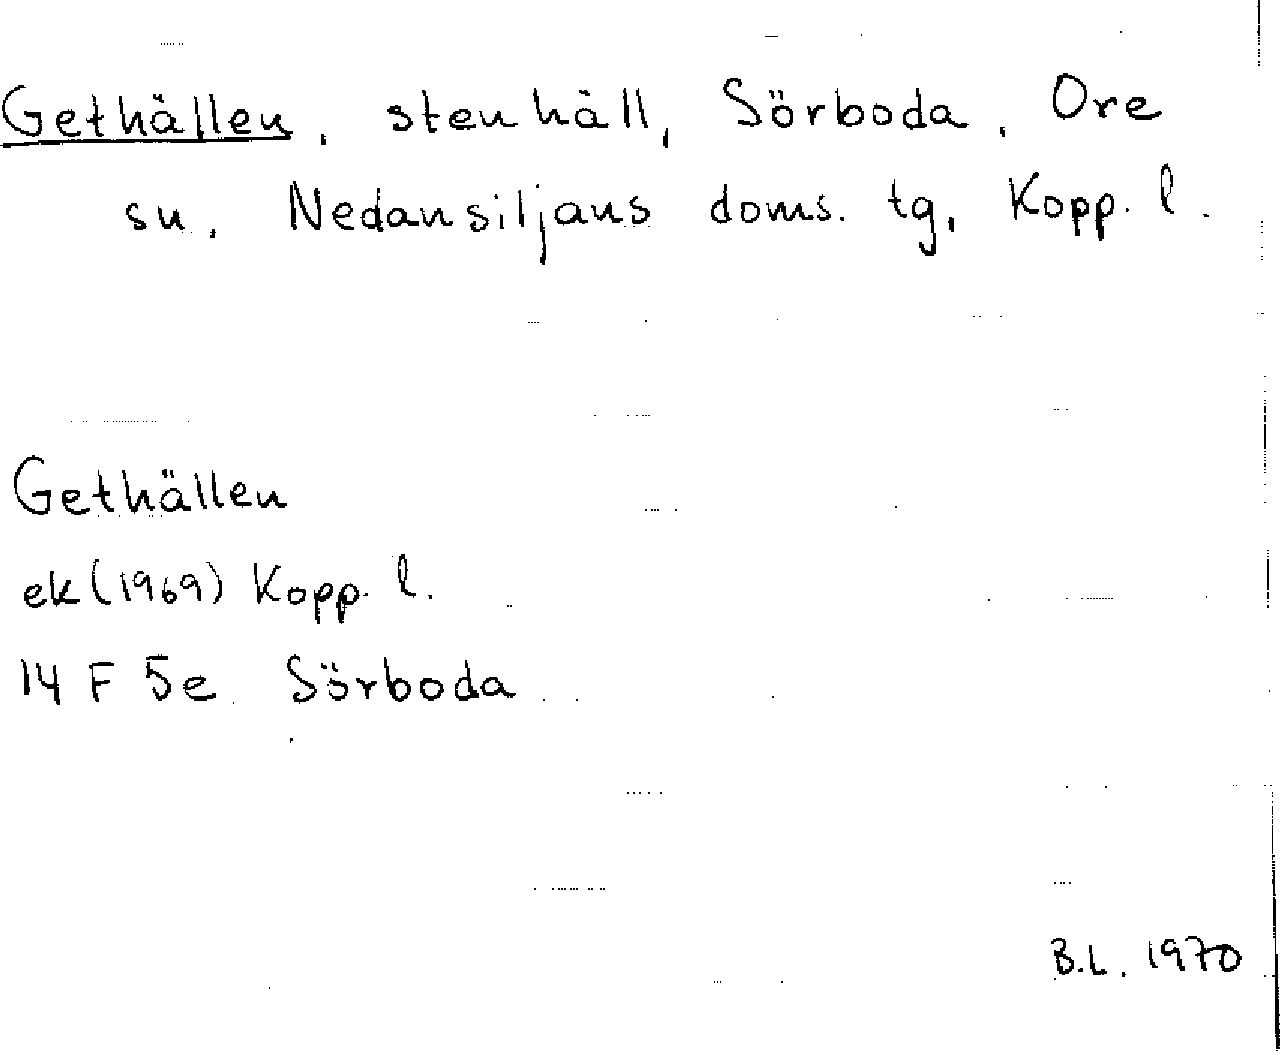 Gethällen, stenhäll, Sörboda, Ore
sn, Nedansiljans doms. tg, Kopp. l.
Gethällen
ek (1969) Kopp. l.
14 F 5e Sörboda
B.L. 1970